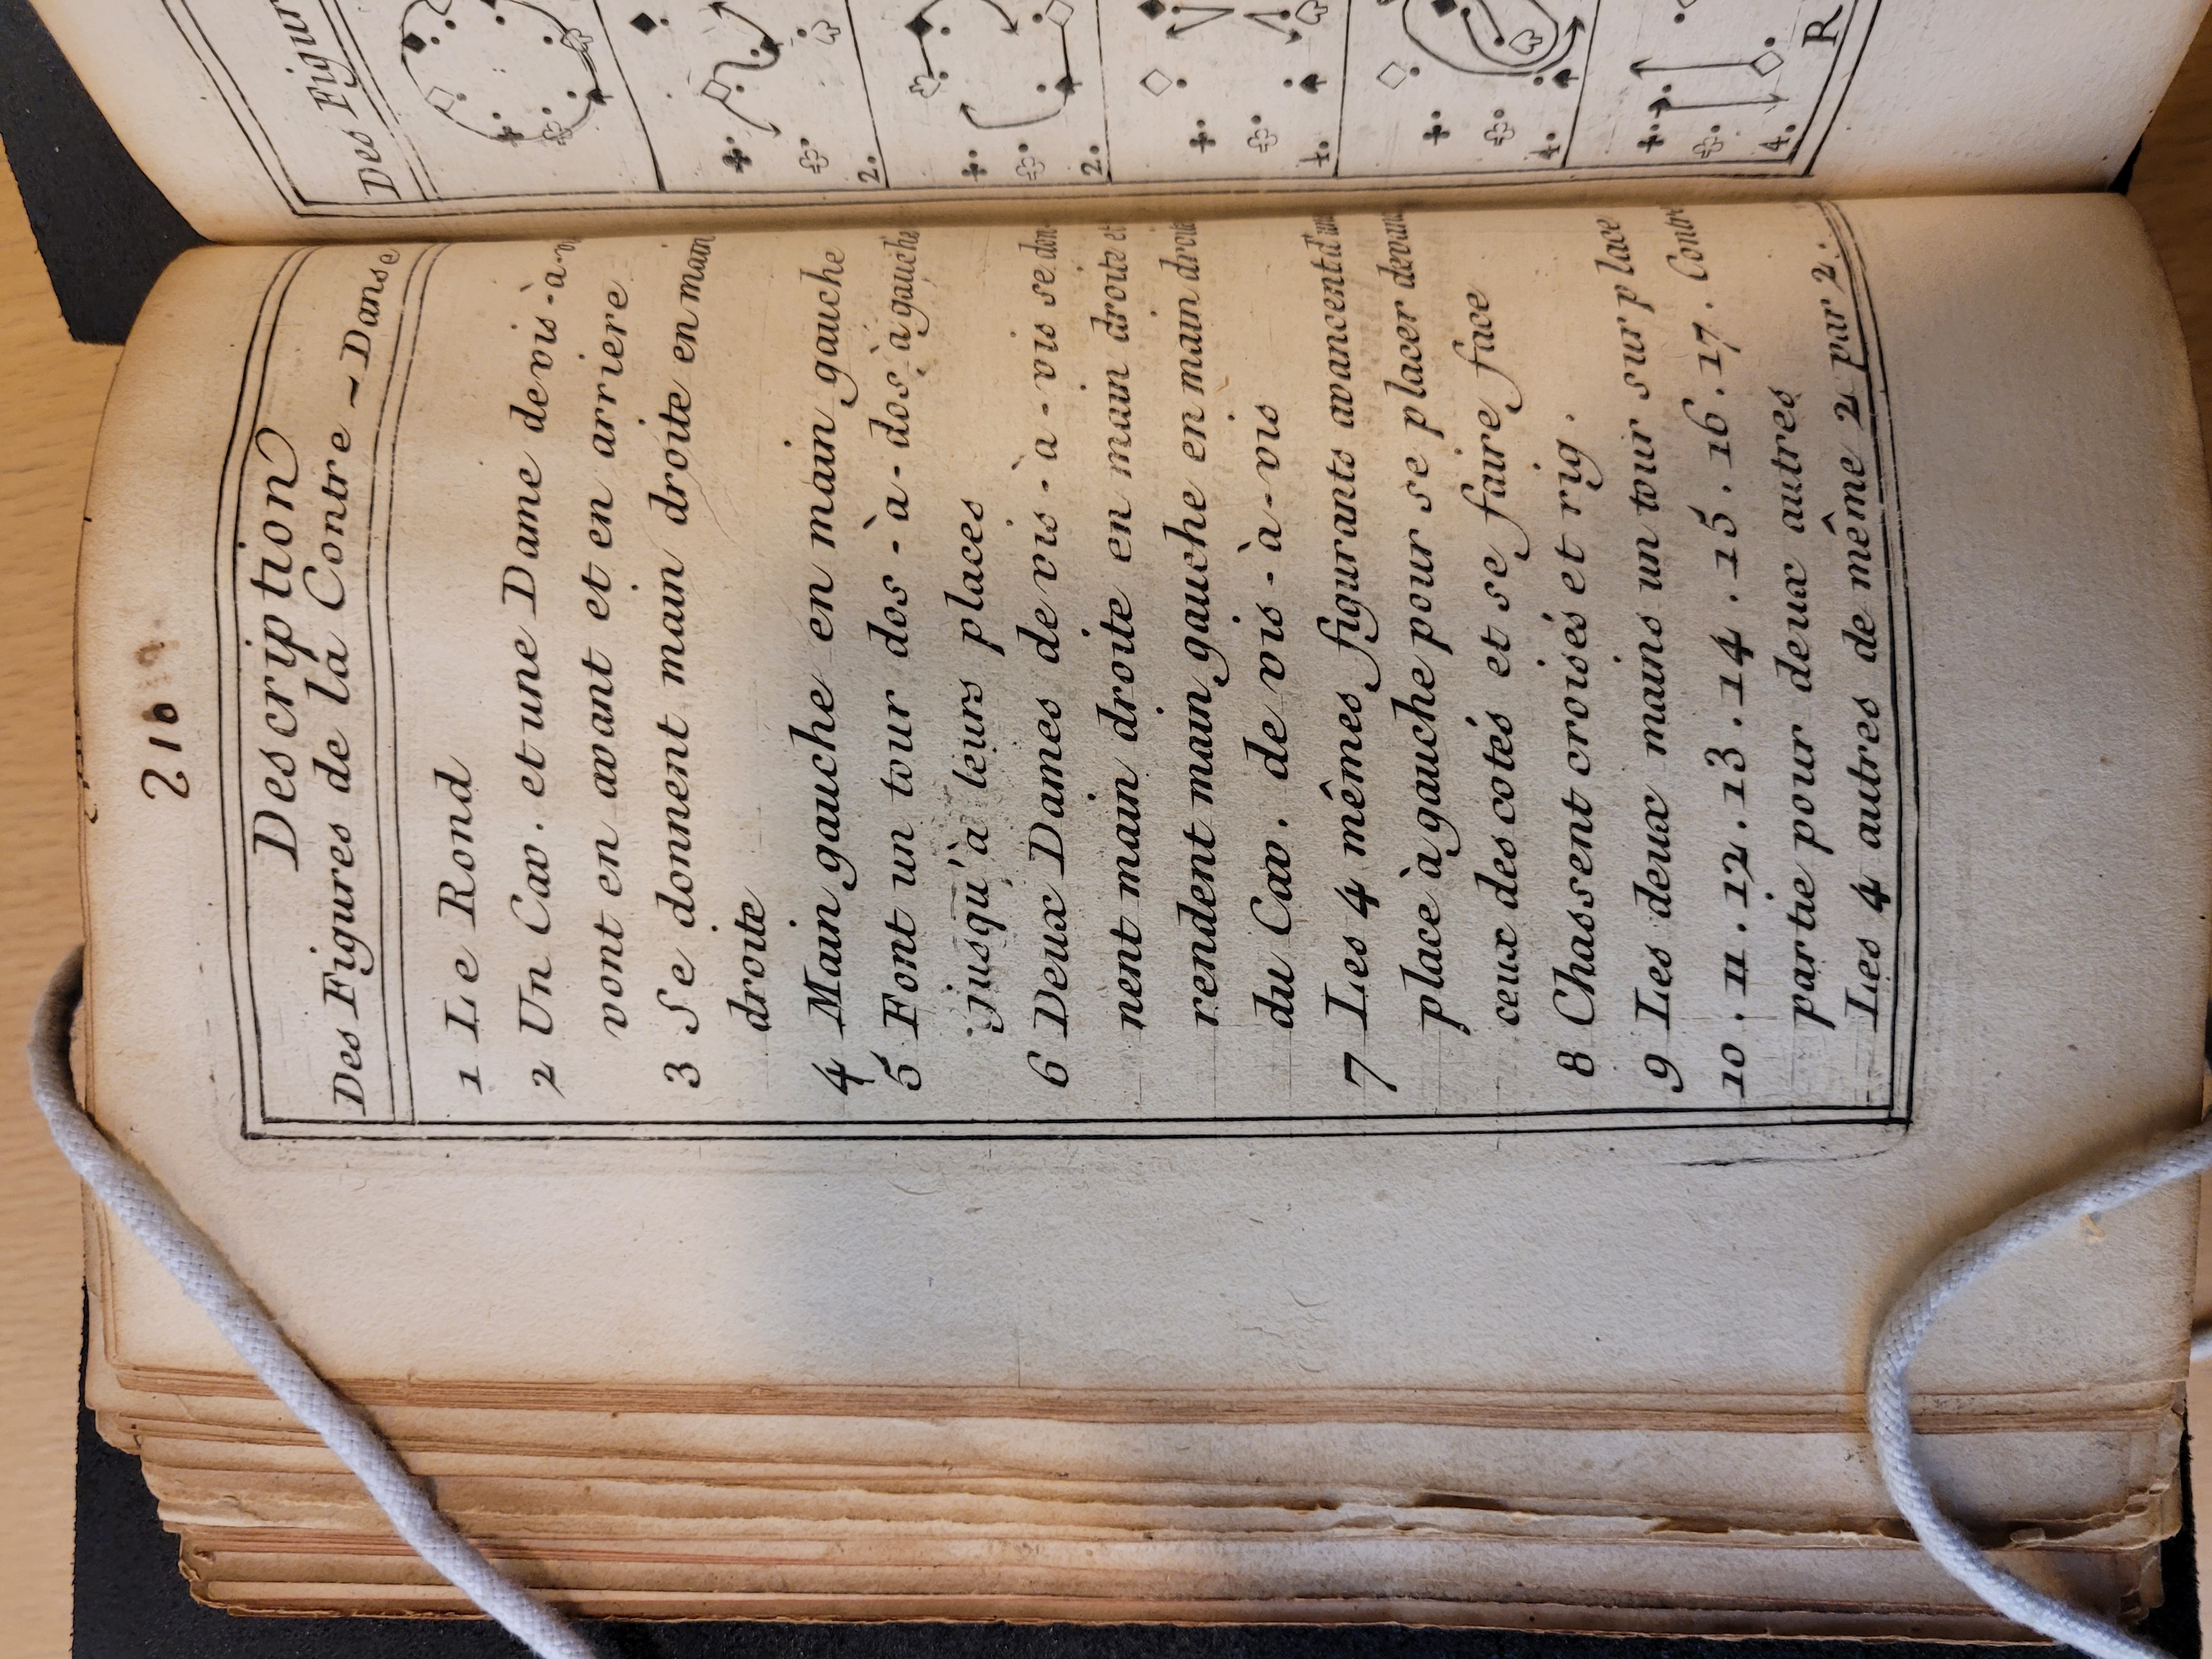 210
Description
Des Figures de la Contre-Danse
1 Le Rond
2 Un Cav. et une Dame de vis-à-vis
vont en avant et en arriere
3 Se donnent main droite en main
droite
4 Main gauche en main gauche
5 Font un tour dos-à-dos à gauche
jusqu'à leurs places
6 Deux Dames de vis-à-vis se don-
nent main droite en main droite et
rendent main gauche en main droite
du Cav. de vis-à-vis
7 Les 4 mêmes figurants avancent d'une
place à gauche pour se placer devant
ceux des cotés et se faire face
8 Chassent croisés et rig.
9 Les deux mains un tour sur place
10. 11. 12. 13. 14. 15. 16. 17. Contre
partie pour deux autres
Les 4 autres de même 2 par 2.
Des Figur
2.
2.
4.
4.
4.
R